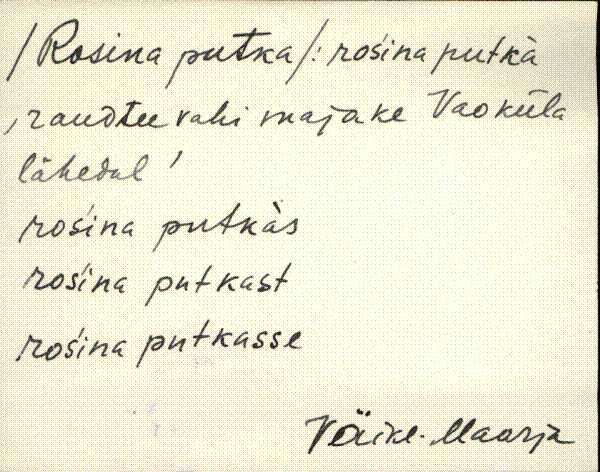 /Rosina putka/: rośina putkà
, raudtee vahi majake Vaoküla
lähedal '
rośina putkàs
rośina putkast
rośina putkasse
Väike-Maarja